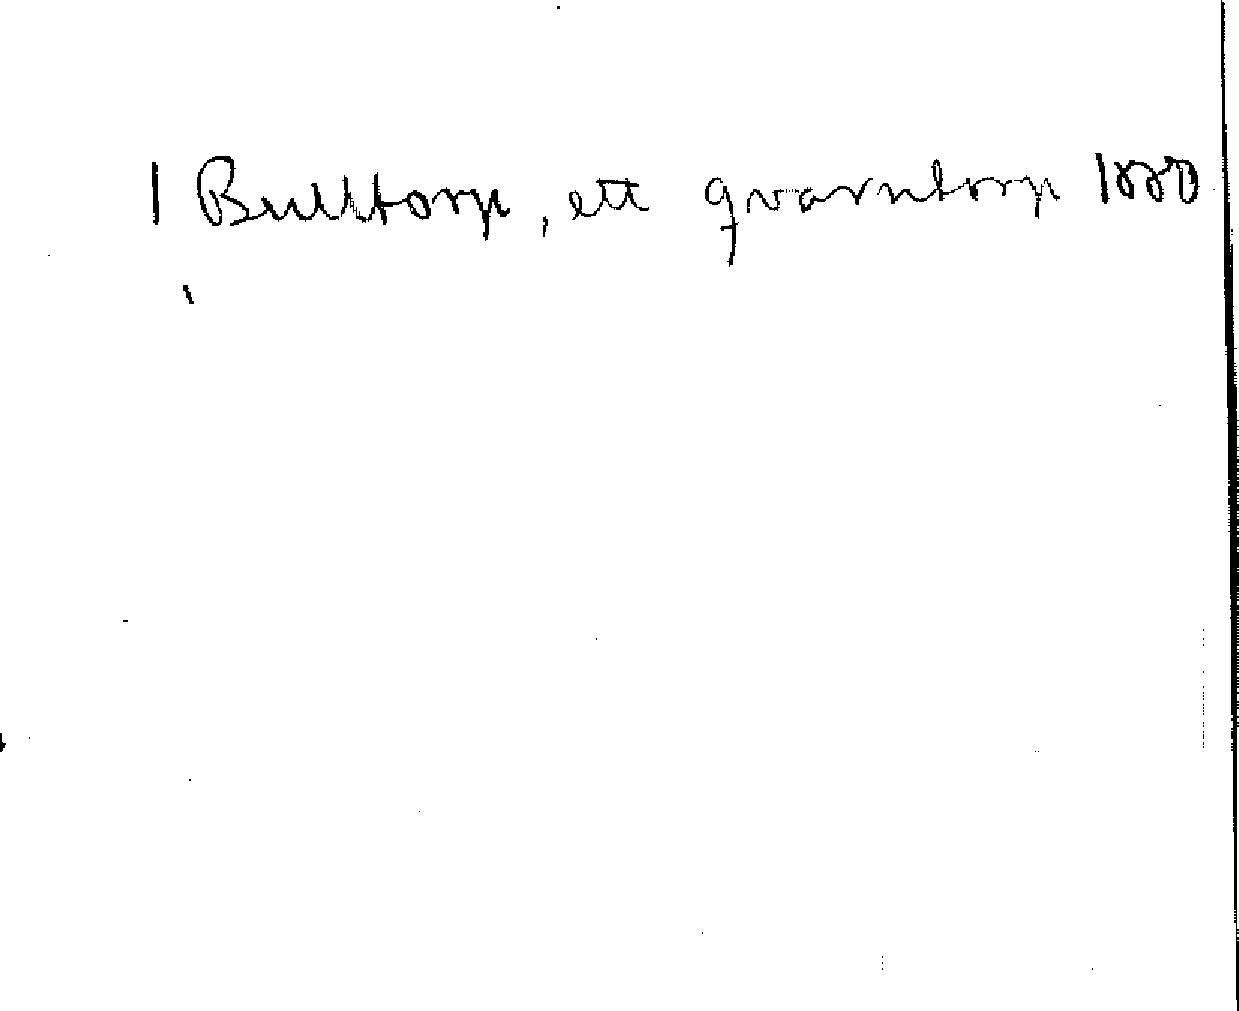 1 Bulltorp, ett qvarntorp 1000